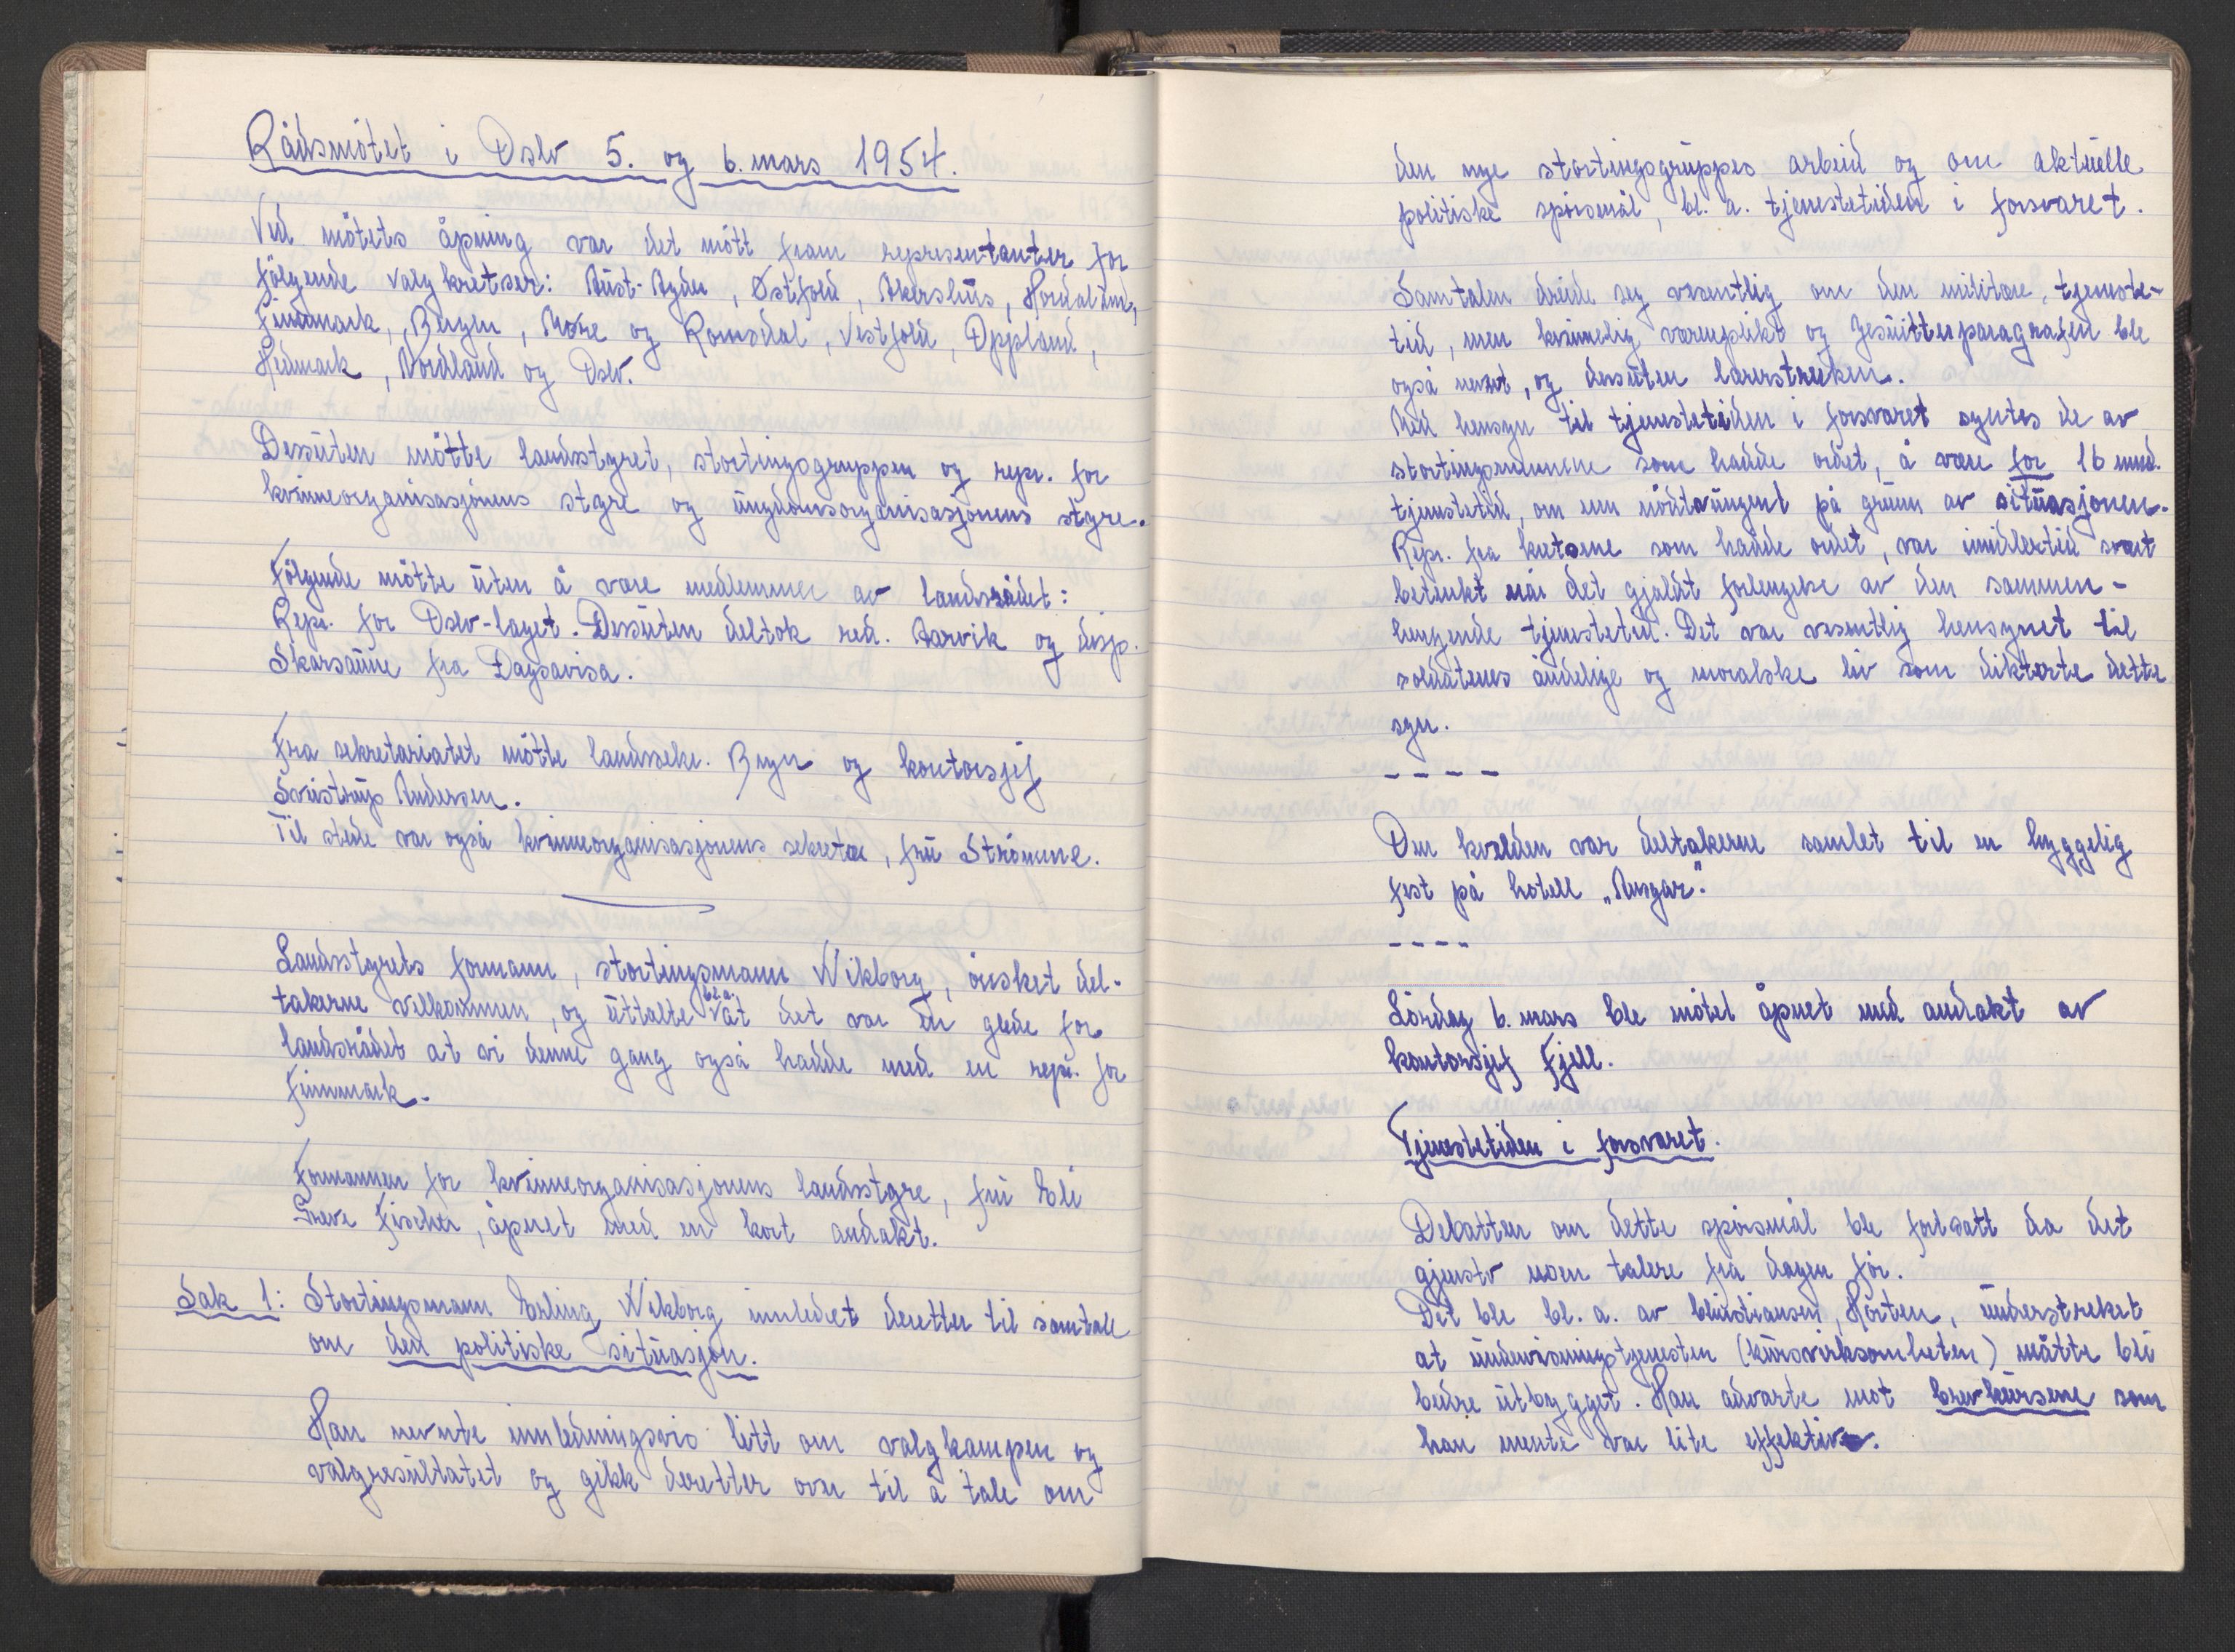 Rådsmötet i Oslo 5. og 6. mars 1954.
Ved mötets åpning var det mött fram representanter for
fölgende valgkretser: Aust-Agder, Østfold, Akershus, Hordaland,
Finnmark, Bergen, Möre og Romsdal, Vestfold, Oppland,
Hedmark, Nordland og Oslo.
Dessuten mötte landsstyret, stortingsgruppen og repr. for
kvinneorganisasjonens styre og ungdomsorganisasjonens styre.
Fölgende mötte uten å være medlemmer av landsrådet:
Repr. for Oslo-laget. Dessuten deltok red. Aarvik og disp.
Skarsaune fra Dagsavisa.
Fra sekretariatet mötte landssekr. Bryn og kontorsjef
Sveistrup Andersen.
Til stede var også kvinneorganisasjonens sekretær, fru Strömme.
Landsstyrets formann, stortingsmann Wikborg, önsket del-
takerne velkommen, og uttalte bl.a. at det var en glede for
landsrådet at vi denne gang også hadde med en repr. for
Finnmark.
Formannen for kvinneorganisasjonens landsstyre, fru Eli
Greve Fischer, åpnet med en kort andakt.
Sak 1: Stortingsmann Erling Wikborg innledet deretter til samtale
om den politiske situasjon.
Han nevnte innledningsvis litt om valgkampen og
valgresultatet og gikk deretter over til å tale om
den nye stortingsgruppes arbeid og om aktuelle
politiske spörsmål, bl. a. tjenestetiden i forsvaret.
Samtalen dreide seg vesentlig om den militære tjeneste-
tid, men kvinnelig verneplikt og Jesuitterparagrafen ble
også nevnt, og dessuten lærerstreiken.
Med hensyn til tjenestetiden i forsvaret syntes de av
stortingsmennene som hadde ordet, å være for 16 mnd.
tjenestetid, om enn nödtvungent på grunn av situasjonen.
Repr. fra kretsene som hadde ordet, var imidlertid svært
betenkt når det gjaldt forlengelse av den sammen-
hengende tjenestetid. Det var vesentlig hensynet til
soldatenes åndelige og moralske liv som dikterte dette
syn.
- - - -
Om kvelden var deltakerne samlet til en hyggelig
fest på hotell „Ansgar".
- - - -
Lördag 6. mars ble mötet åpnet med andakt av
kontorsjef Fjell.
Tjenestetiden i forsvaret.
Debatten om dette spörsmål ble fortsatt da det
gjensto noen talere fra dagen för.
Det ble bl. a. av Christiansen, Horten, understreket
at undervisningstjenesten (kursvirksomheten) måtte bli
bedre utbygget. Han advarte mot brevkursene som
han mente var lite effektive.